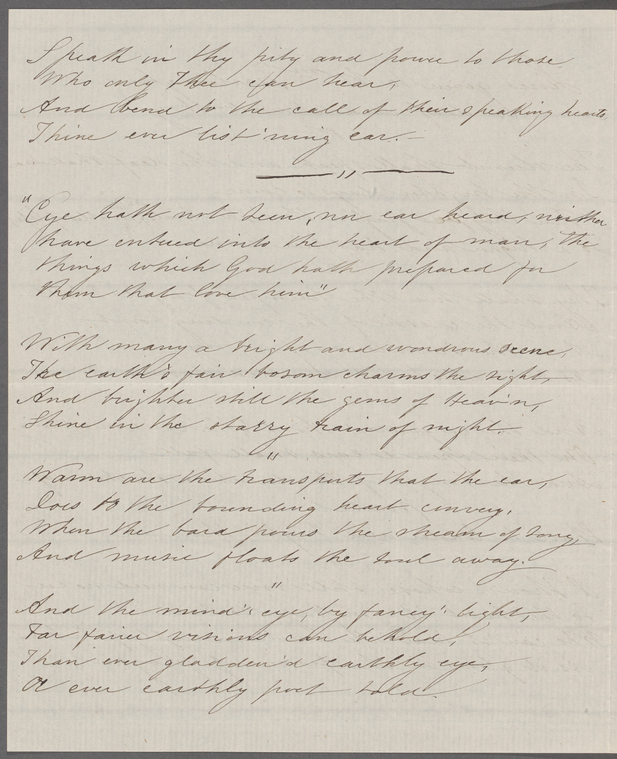 Speak in thy pity and power to those
Who only Thee can hear,
And bend to the call of their speaking hearts
Thine ever list'ning ear.—
"Eye hath not seen, nor ear heard, neither
have entered into the heart of man, the
things which God hath prepared for
them that love him"
With many a bright and wondrous scene,
The earth's fair bosom charms the sight,
And brighter still the gems of Heav'n,
Shine in the starry train of night.
"
Warm are the transports that the ear,
Does to the bounding heart convey,
When the bard pours the stream of song,
And music floats the soul away.
"
And the mind's eye, by fancy's light,
Far fairer visions can behold,
Than ever gladden'd earthly eye,
Or ever earthly poet told.